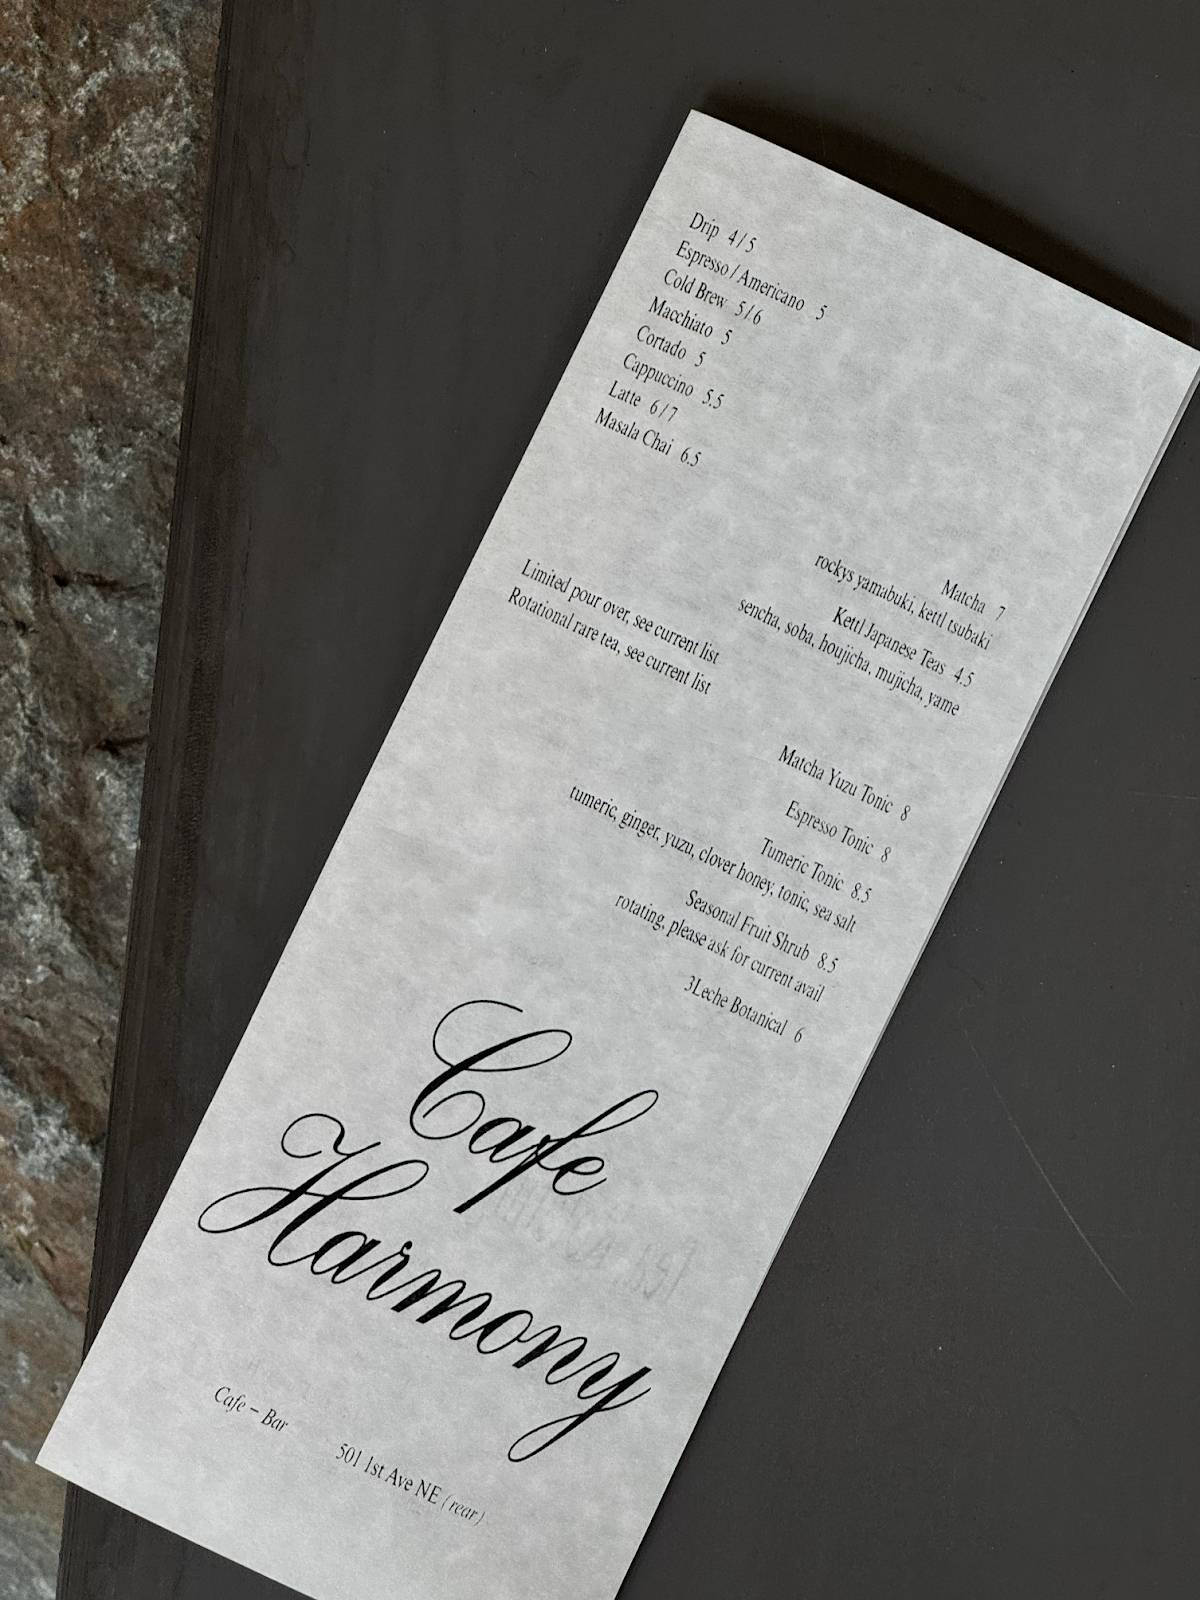 Drip 4/5
Espresso / Americano 5
Cold Brew 5/6
Macchiato 5
Cortado 5
Cappuccino 5.5
Latte 6/7
Masala Chai 6.5
Matcha 7
rockys yamabuki, kettl tsubaki
Kettl Japanese Teas 4.5
sencha, soba, houjicha, mujicha, yame
Limited pour over, see current list
Rotational rare tea, see current list
Matcha Yuzu Tonic 8
Espresso Tonic 8
Tumeric Tonic 8.5
tumeric, ginger, yuzu, clover honey, tonic, sea salt
Seasonal Fruit Shrub 8.5
rotating, please ask for current avail
3Leche Botanical 6
Cafe
Harmony
Cafe – Bar
501 1st Ave NE (rear)